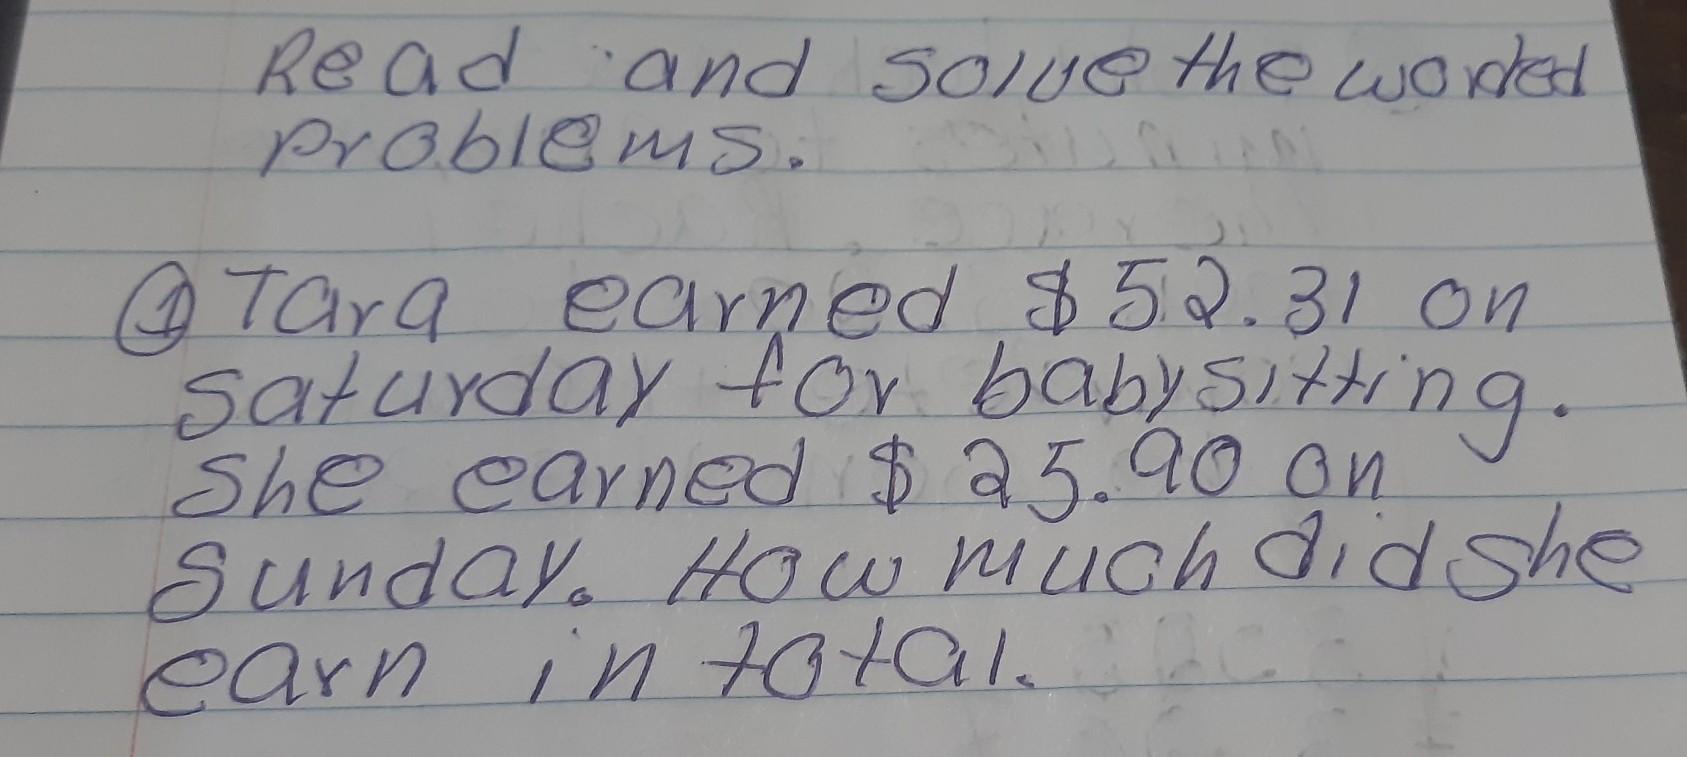 Read and solve the worded
problems.
① Tara earned $52.31 on
Saturday for babysitting.
She earned $25.90 on
Sunday. How much did she
earn in total.